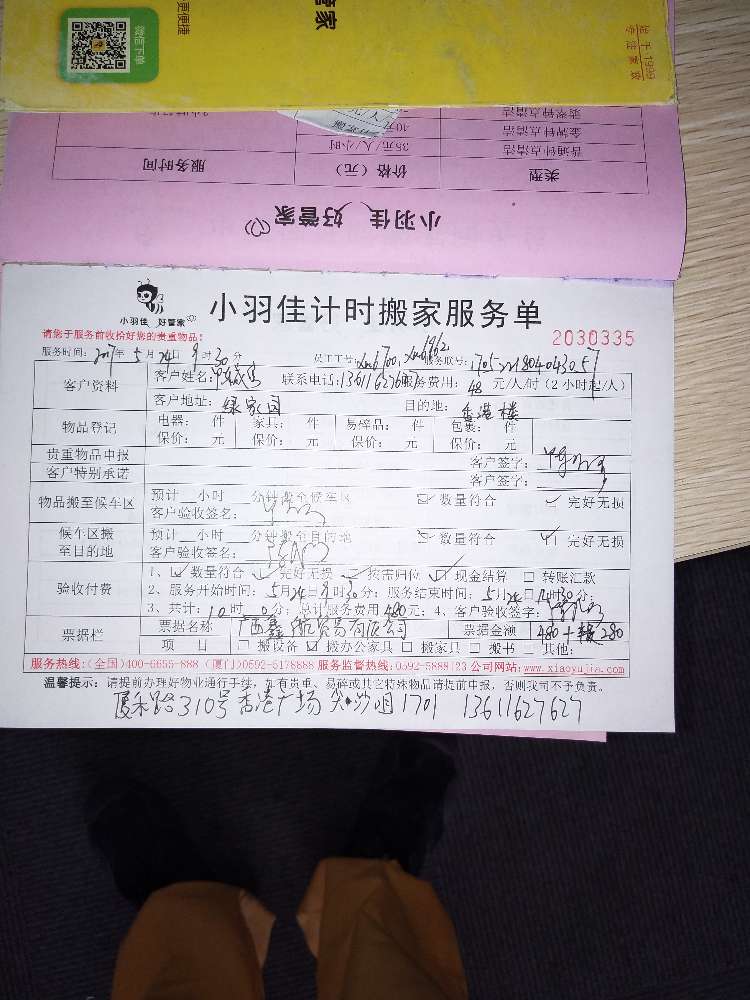 微信下单
更便捷
管家
始于1999
专注家政
翡翠钟点清洁
金牌钟点清洁
40元
普通钟点清洁
35元/人/小时
类型
价格(元)
服务时间
小羽佳 好管家
小羽佳 好管家
小羽佳计时搬家服务单
请您于服务前收拾好您的贵重物品!
2030335
服务时间: 2017年 5月 24日 9时 30分 员工工号:
客户资料
客户姓名: 联系电话: 13611627627 服务费用: 48 元/人/时(2小时起/人)
客户地址: 绿家园 目的地: 香港楼
物品登记
电器: 件 家具: 件 易碎品: 件 包裹: 件
保价: 元 保价: 元 保价: 元 保价: 元
贵重物品申报 客户签字:
客户特别承诺 客户签字:
物品搬至候车区
预计__小时__分钟搬至候车区 数量符合 完好无损
客户验收签名:
候车区搬至目的地
预计__小时__分钟搬至目的地 数量符合 完好无损
客户验收签名:
验收付费
1、数量符合 完好无损 按需归位 现金结算 转账汇款
2、服务开始时间: 5月24日9时30分; 服务结束时间: 5月24日 时30分;
3、共计: 10时 0分; 总计服务费用 480元; 4、客户验收签字:
票据栏
票据名称 广西鑫 贸易有限公司 票据金额 480+ 280
项 目 搬设备 搬办公家具 搬家具 搬书 其他:
服务热线:(全国)400-6655-888 (厦门)0592-5178888 服务监督热线:0592-5888123 公司网站:www.xiaoyujia.com
温馨提示: 请提前办理好物业通行手续, 如有贵重、易碎或其它特殊物品请提前申报, 否则我司不予负责。
厦禾路310号香港广场 1701 13611627627